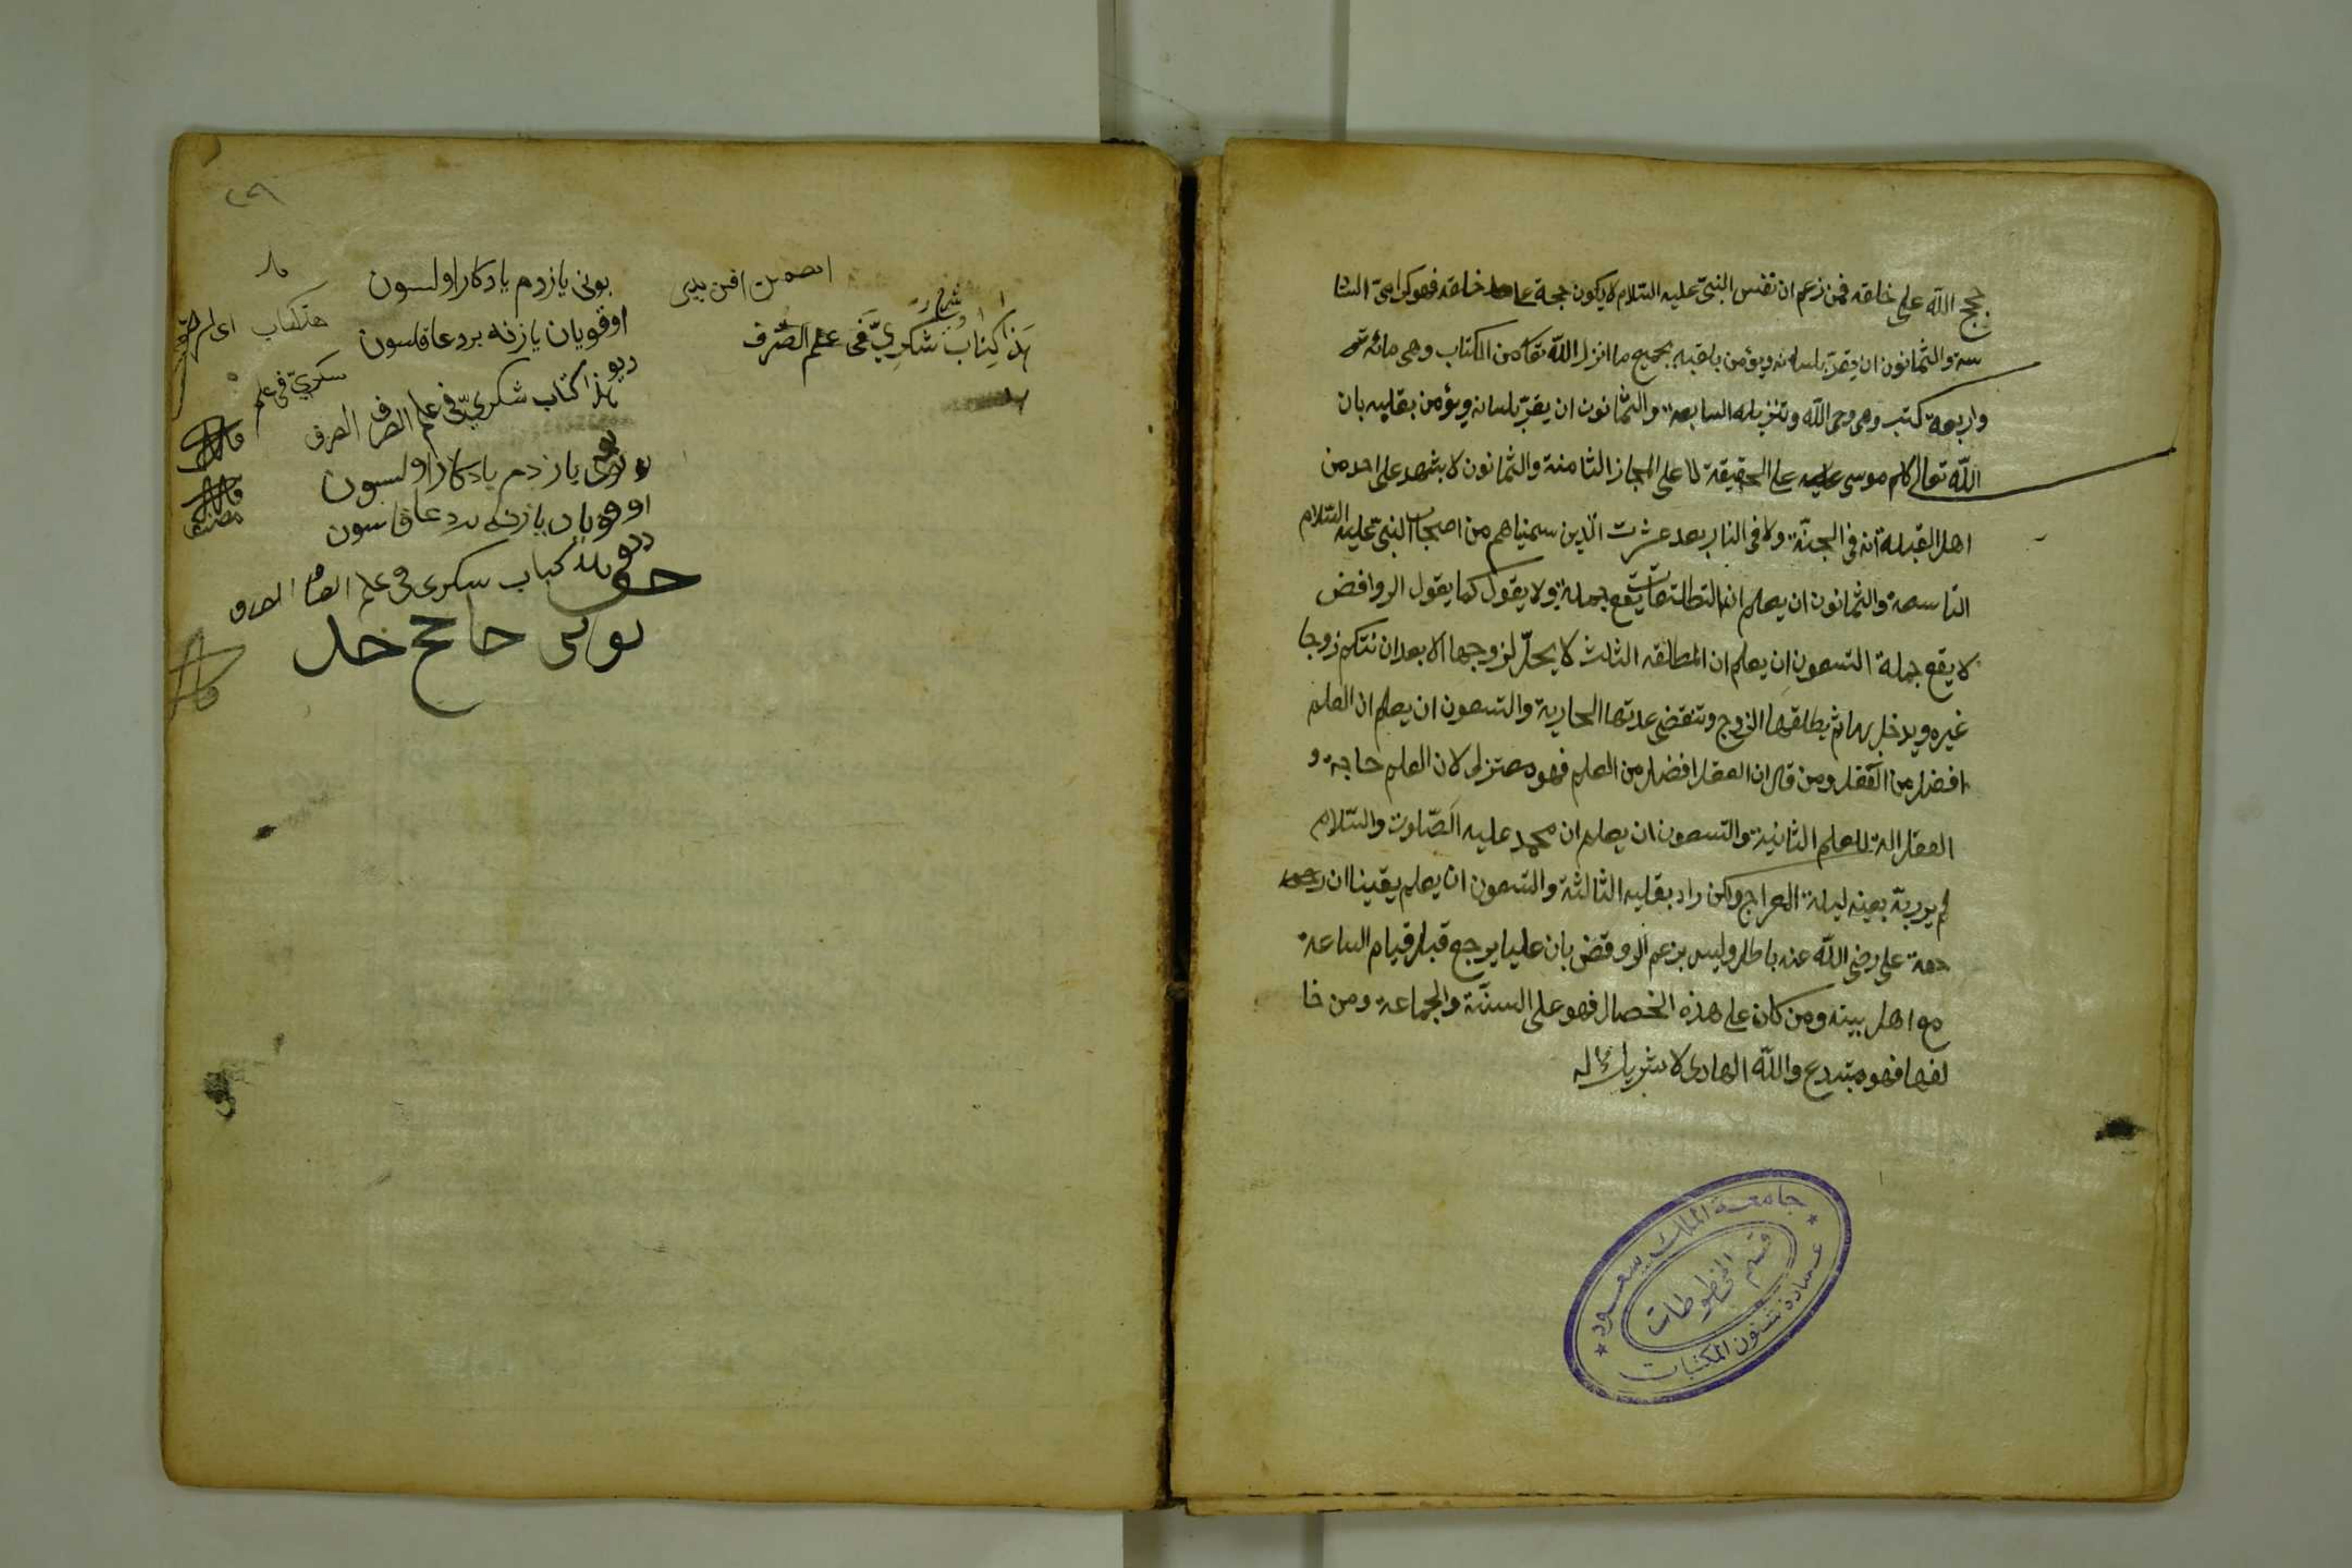 حجج الله على خلقه فمن زعم ان نفس النبى عليه السلام لا يكون حجة على خلقه فهو كرامى السا
سة والثمانون ان يقر بلسانه ويؤمن بلقبه بجميع ما انزل الله تعا من الكتاب وهى مائة
واربعة كتب وهى وحى الله وتنزيله السابعة والثمانون ان يقر بلسانه ويؤمن بقلبه بان
الله تعالى كلم موسى على الحقيقة لا على المجاز الثامنة والثمانون لا يشهد على احد من
اهل القبلة انه فى الجنة ولا فى النار بعد عشرت الذين سميناهم من اصحاب النبى عليه السلام
التاسعة والثمانون ان يعلم ان التطلقات يقع جملة ولا يقول كما يقول الروافض
لا يقع جملة التسعون ان يعلم ان المطلقه الثلث لا يحل لزوجها الا بعد ان تنكح زوجا
غيره ويدخل بها ثم يطلقها الزوج وتنقضى عدتها الحادية والتسعون ان يعلم ان العلم
افضل من العقل ومن قال ان العقل افضل من العلم فهو معتزلى لان العلم حاجة و
العقل الة للعلم الثانية والتسعون ان يعلم ان محمد عليه الصلوت والسلام
لم ير ربه بعينه ليلة المعراج ولكن راه بقلبه الثالثة والتسعون ان يعلم يقينا ان رجعة
جعة على رضى الله عنه باطل وليس بزعم الروفض بان عليا يرجع قبل قيام الساعة
مع اهل بيته ومن كان على هذه الخصال فهو على السنة والجماعة ومن خا
لفها فهو مبتدع والله الهادى لا شريك له
جامعة الملك سعود
قسم المخطوطات
عمادة شئون المكتبات
٢٩
هذا كتاب شكرى فى علم الصرف
بونى يازدم يادكار اولسون
اوقويان يازنه بر دعا قلسون
ديو هذا كتاب شكرى فى علم الصرف الصرف
يازدم يادكار اولسون
اوقويان يازنه بر دعا قلسون
ديو هذا كتاب سكرى فى علم الصرف
هتكتاب
سكرى فى علم